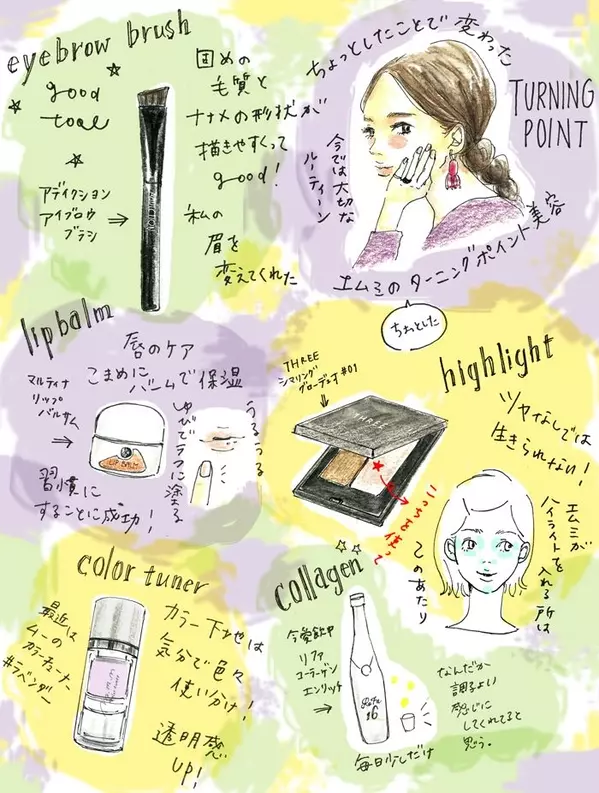 eyebrow brush
good
tool
固めの
毛質と
ナナメの形状が
描きやすくって
good!
私の
眉を
変えてくれた
アディクション
アイブロウ
ブラシ
ちょっとしたことで変わった
TURNING
POINT
今では大切な
ルーティーン
エムミのターニングポイント美容
ちょっとした
lip balm
唇のケア
こまめにバームで保湿
マルティナ
リップ
バルサム
LIP BALM
ゆびでラフに塗る
うるうる
習慣に
することに成功!
highlight
THREE
シマリング
グローデュオ #01
THREE
ツヤなしでは
生きられない!
こっちを使って
このあたり
エムミが
ハイライトを
入れる所は
color tuner
最近は
ムーの
カラーチューナー
#ラベンダー
カラー下地は
気分で色々
使い分け!
透明感
up!
collagen
今愛飲中
リファ
コラーゲン
エンリッチ
ReFa
16
毎日少しだけ
なんだか
調子よい
感じに
してくれてると
思う。